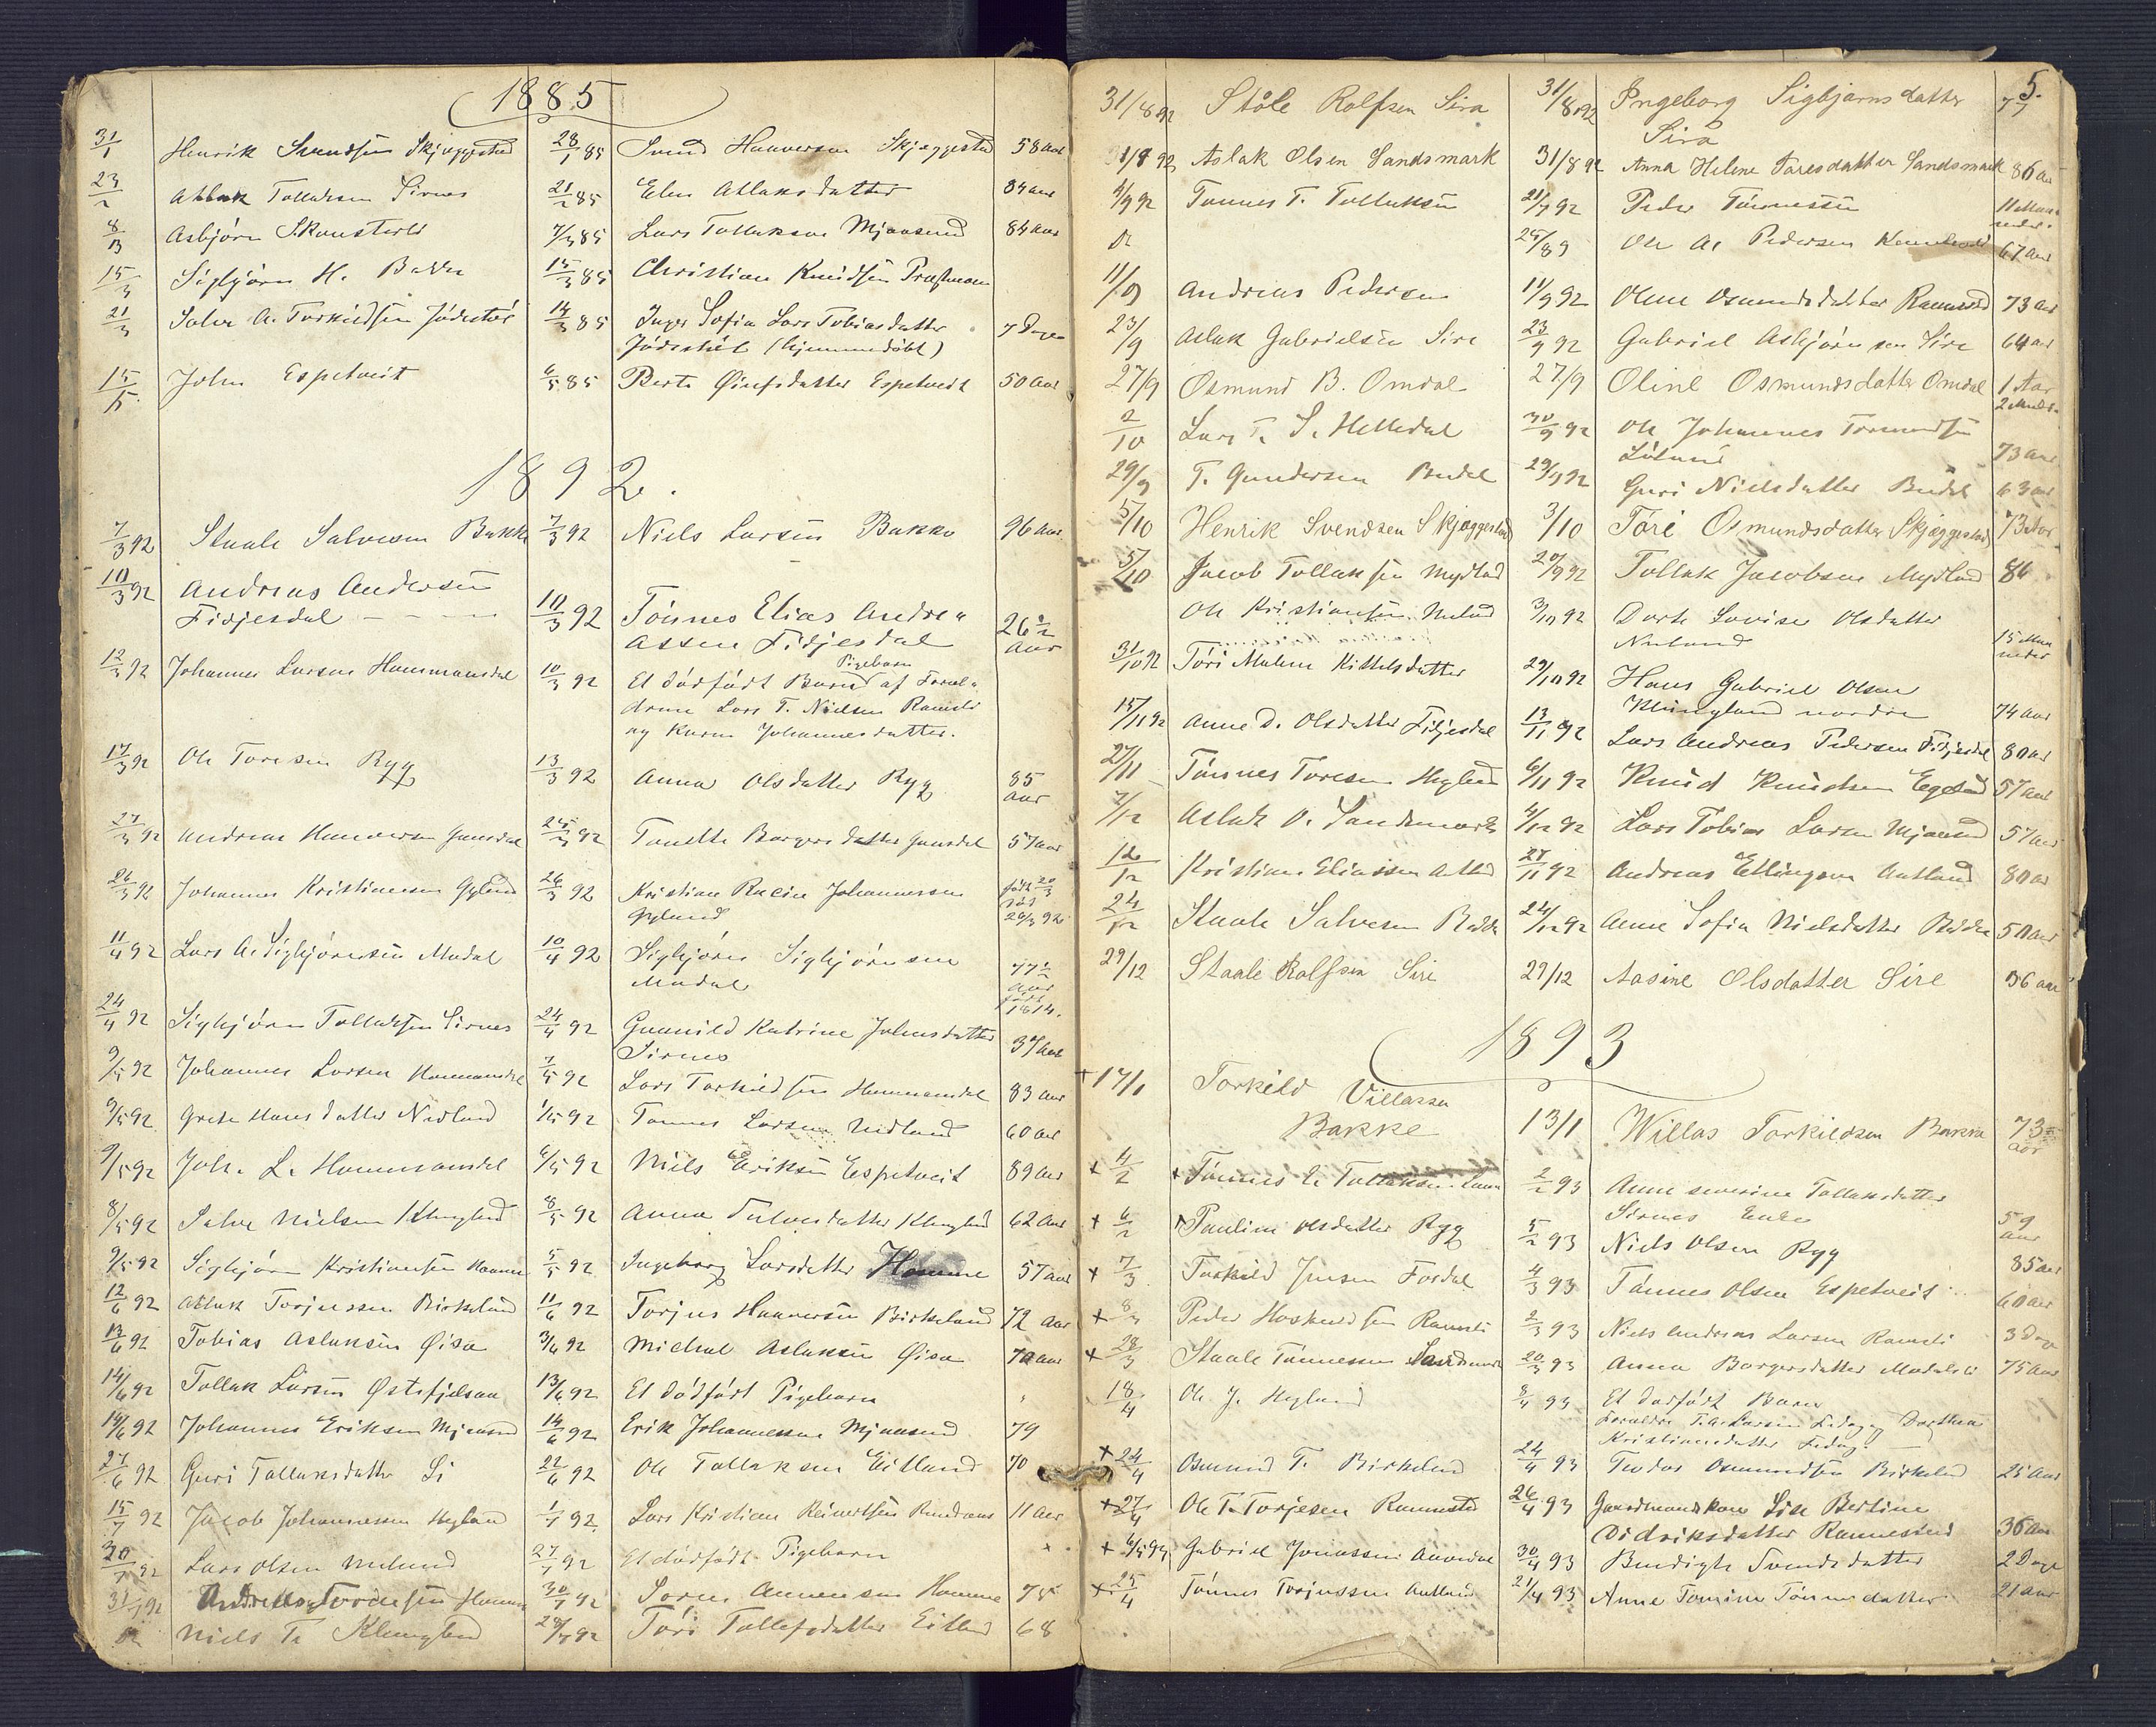 1885
31/1 Henrik Svendsen Skjæggested 28/1 85 Svend Hanversen Skjæggested 58 aar
23/2 Atlak Tollaksen Sirnes 21/2 85 Elen Atlaksdatter 84 aar
8/3 Asbjörn 7/3 85 Lars Tollaksen Mjaasund 84 aar
15/3 Sigbjörn H. Bakke 15/3 85 Christian Knudsen
21/3 Salve A. Torkildsen 14/3 85 Inger Sofia Lars Tobiasdatter 7 Dage
(hjemmedöbt)
15/5 John Espetveit 6/5 85 Berte Espetveit 50 aar
1892.
7/3 92 Staale Salvesen Bakke 7/3 92 Niels Larsen Bakke 96 aar
10/3 92 Andreas Andersen
Fidjesdal - - - 10/3 92 Tönnes Elias Andre-
assen Fidjesdal 26 1/2 aar
12/3 92 Johannes Larsen Hammansdal 10/3 92 Et dödfödt Barn Pigebarn af Foræl-
drene Lars T. Nielsen Ramsli
og Karen Johannesdatter.
17/3 92 Ole Toresen Rygg 13/3 92 Anna Olsdatter Rygg 85 aar
27/3 92 Andreas Hanversen Gausdal 25/3 92 Tonette Borgersdatter Gausdal 57 aar
26/3 92 Johannes Kristiansen Gyland 26/3 92 Kristian Johannessen födt 20/3
Gyland 26/3 92
11/4 92 Lars A. Sigbjörnsen Modal 10/4 92 Sigbjörn Sigbjörnsen
Modal 77 1/2 aar födt 1814.
24/4 92 Sigbjörn Tollaksen Sirnes 24/4 92 Gunnild Katrine Johnsdatter
Sirnes 37 aar
9/5 92 Johannes Larsen Hammansdal 7/5 92 Lars Torkildsen Hammansdal 83 aar
9/5 92 Grete Hansdatter Nedland 1/5 92 Tönnes Larsen Nedland 60 aar
9/5 92 Joh. L. Hammansdal 6/5 92 Niels Eriksen Espetveit 89 aar
8/5 92 Salve Nielsen Klungland 8/5 92 Anna Salvesdatter Klungland 62 aar
9/5 92 Sigbjörn Kristiansen Haamme 5/5 92 Ingeborg Larsdatter Hamme 57 aar
12/6 92 Atlak Torjussen Birkeland 11/6 92 Torjus Hanversen Birkeland 72 aar
13/6 92 Tobias Aslaksen Øisæ 3/6 92 Michal Aslaksen Øisæ 70 aar
14/6 92 Tollak Larsen Østefjelsaa 13/6 92 Et dödfödt Pigebarn
14/6 92 Johannes Eriksen Mjaasund 14/6 92 Erik Johannessen Mjaasund 79
27/6 92 Guri Tollaksdatter Li 22/6 92 Ole Tollaksen Eitland 70
15/7 92 Jacob Johannessen Hegland 1/7 92 Lars Kristian Reinertsen 11 aar
20/7 92 Lars Olsen Nuland 27/7 92 Et dödfödt Pigebarn
31/7 92 Hamme 30/7 92 Hamme 75
Do Niels T. Klungland 28/7 92 Töri Tollefsdatter Eitland 68
5.
31/8 92 Ståle Rolfsen Sira 31/8 1892 Ingeborg Sigbjørnsdatter 77
Sira
31/8 92 Aslak Olsen Sandsmark 31/8 92 Anna Helene Taresdatter Sandsmark 86 aar
9/9 92 Tønnes T. Tollaksen 21/7 92 Peder Tönnessen 11 Maaneder.
Do 25/8 9 Ole A. Pedersen 67 aar
11/9 Andreas Pedersen 11/9 92 Oline Osmundsdatter Rannestad 73 aar
23/9 Aslak Gabrielsen Sire 23/9 92 Gabriel Asbjörnsen Sire 64 aar
27/9 Osmund B. Omdal 27/9 Oline Osmundsdatter Omdal 1 Aar 2 Mndr.
2/10 Lars T. S. Helledal 30/9 92 Ole Johannes Tormundsen
Löland 73 aar
29/9 T. Gundersen Budal 29/9 92 Guri Nielsdatter Budal 63 aar
5/10 Henrik Svendsen Skjæggestad 3/10 Töri Osmundsdatter Skjæggestad 73 Aar
5/10 Jacob Tollaksen Mydland 20/9 92 Tollak Jacobsen Mydland 86
Ole Kristiansen Nuland 3/10 92 Dorte Lovise Olsdatter
Nuland 15 Maaneder
31/10 92 Töri Malene Kittelsdatter 29/10 92 Hans Gabriel Olsen
Klungland nordre 74 aar
15/11 92 Anne D. Olsdatter Fidjesdal 13/11 92 Lars Andreas Pedersen Fidjesdal 80 aar
27/11 Tönnes Toresen Hegland 6/11 92 Knud Knudsen Egeland 57 aar
7/12 Aslak O. Sandsmark 4/12 92 Lars Tobias Larsen Mjaasund 57 aar
12/12 Kristian Eliassen Atland 27/11 92 Andreas Ellingsen Autland 80 aar
24/12 Staale Salvesen Bakke 24/12 92 Anne Sofia Nielsdatter Bakke 50 aar
29/12 Staale Rolfsen Sire 29/12 Aasine Olsdatter Sire 56 aar
1893
+ 17/1 Torkild Villassen
Bakke 13/1 Willas Torkildsen Bakke 73 aar
+ 4/2 Tönnes E. Tollaksen 2/2 93 Anne Severine Tollaksdatter
Sirnes Enke 59 aar
+ 6/2 Pauline Olsdatter Rygg 5/2 93 Niels Olsen Rygg 85 aar
+ 7/3 Torkild Jensen Fosdal 4/3 93 Tönnes Olsen Espetveit 60 aar
+ 8/3 Peder Hoskuldsen Ramsli 2/3 93 Niels Andreas Larsen Ramsli 3 Dage
+ 28/3 Staale Tönnessen Sandsmark 20/3 93 Anna Borgersdatter 75 aar
18/4 Ole J. Hegland 8/4 93 Et dödfödt Barn
Forældre T. A. Larsen Fedog og Dorthea
Kristiansdatter Fedog.
+ 24/4 Osmund T. Birkeland 24/4 93 Teodor Osmundsen Birkeland 25 aar
+ 27/4 Ole T. Torjesen Rannestad 26/4 93 Gaardmandskone Lise Bertine
Didriksdatter Rannestad 36 aar
+ 6/5 93 Gabriel Jonassen 30/4 93 Bendigte Svendsdatter 2 Dage
+ 25/4 Tönnes Torjussen Autland 21/4 93 Anne Tomine Tönnesdatter 21 aar